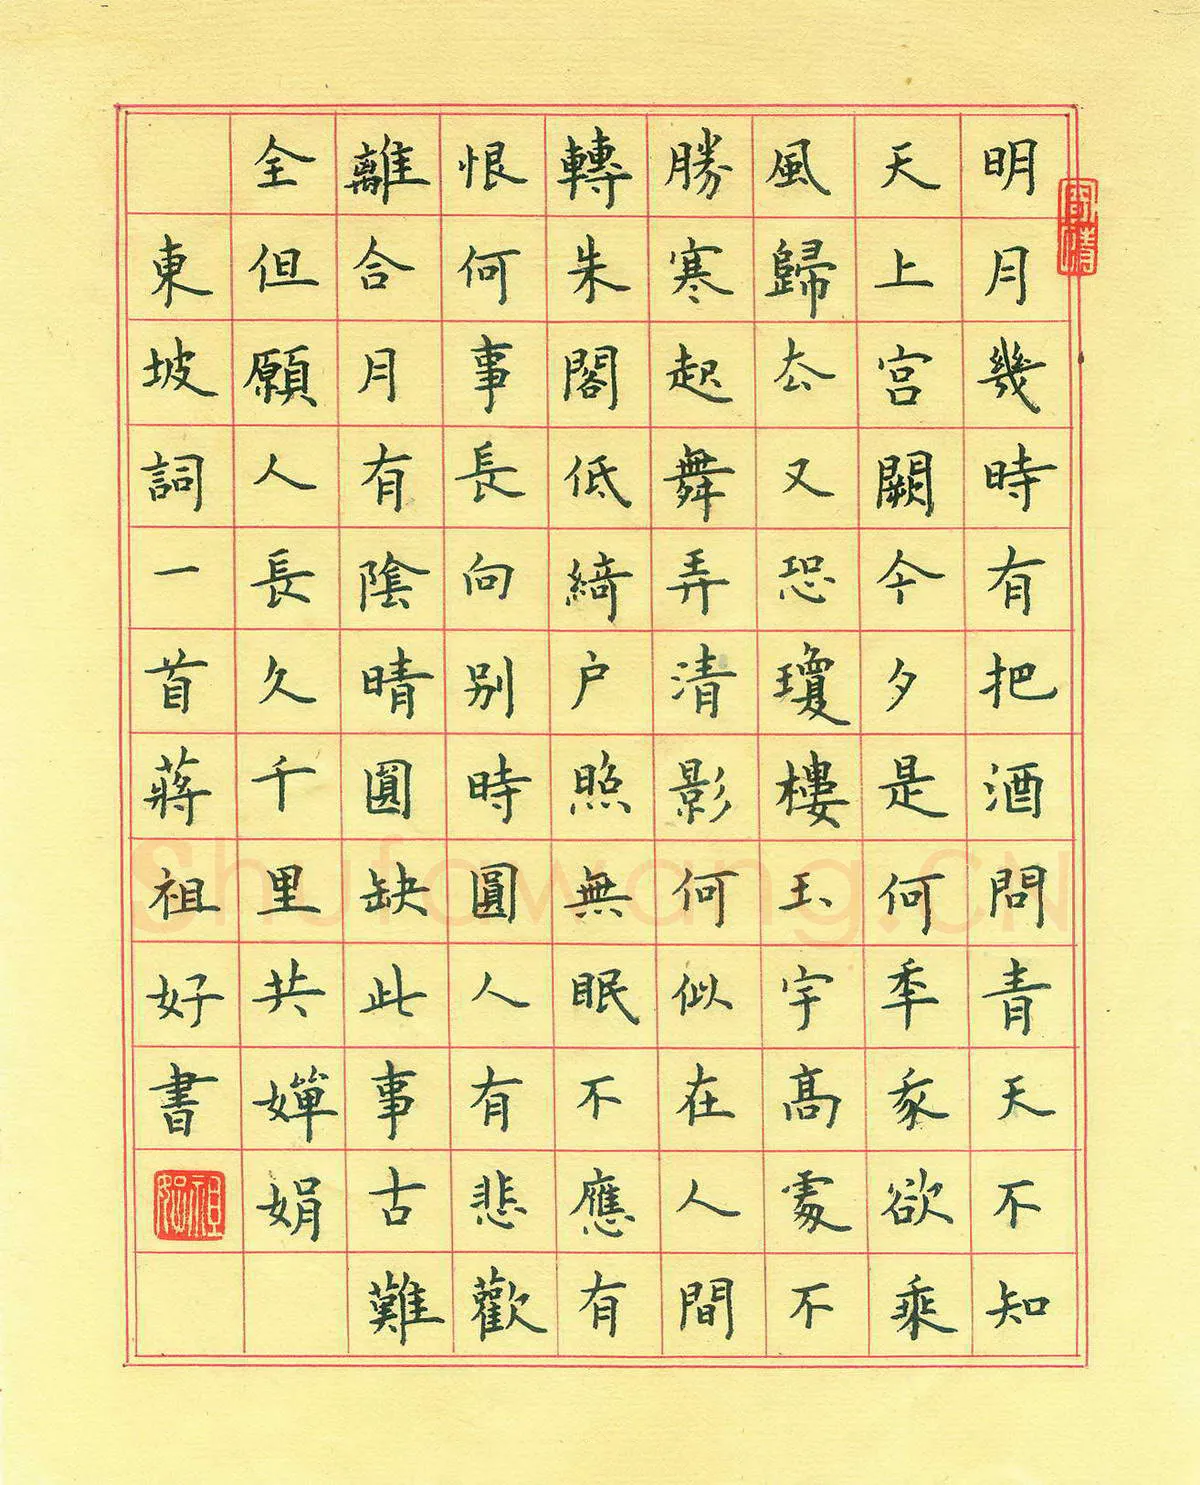 明月幾時有把酒問青天不知
天上宫闕今夕是何秊我欲乘
風歸厺又恐瓊樓玉宇髙處不
勝寒起舞弄清影何似在人間
轉朱閣低綺户照無眠不應有
恨何事長向别時圓人有悲歡
離合月有陰晴圓缺此事古難
全但願人長久千里共嬋娟
東坡詞一首蔣祖好書
祖好
Shufawang.CN